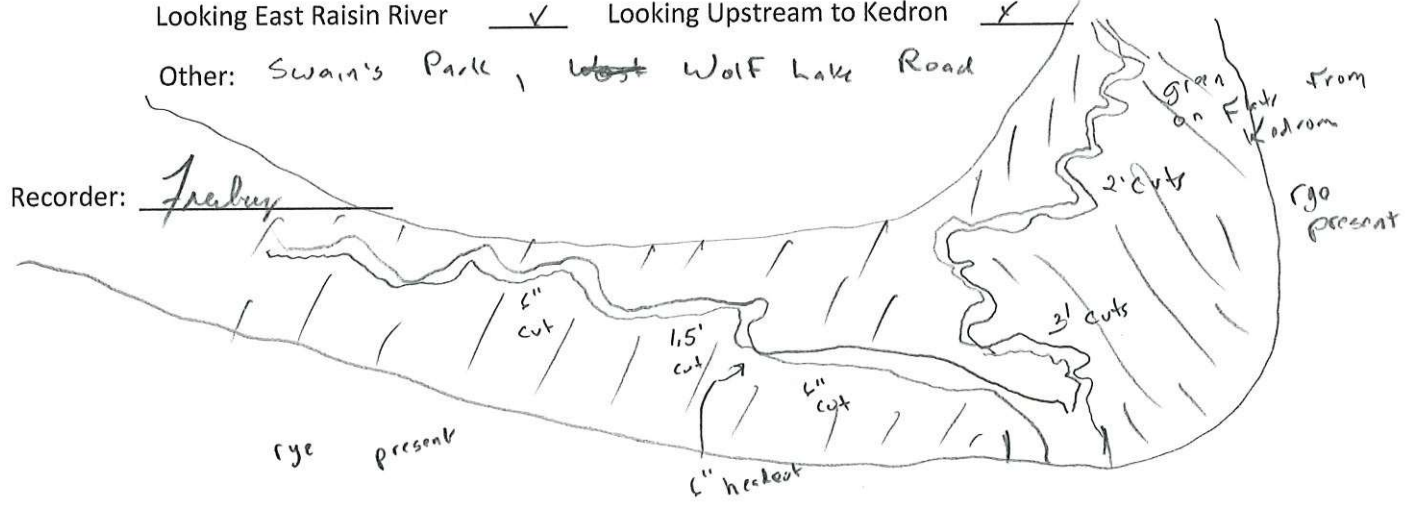 Looking East Raisin River ✓ Looking Upstream to Kedron ✓
Other: Swain's Park, West Wolf Lake Road
green From
on Flats Kedrom
Recorder:
2' cuts
rye
present
6"
cut
3' cuts
1.5'
cut
6"
cut
rye present
6" headcut